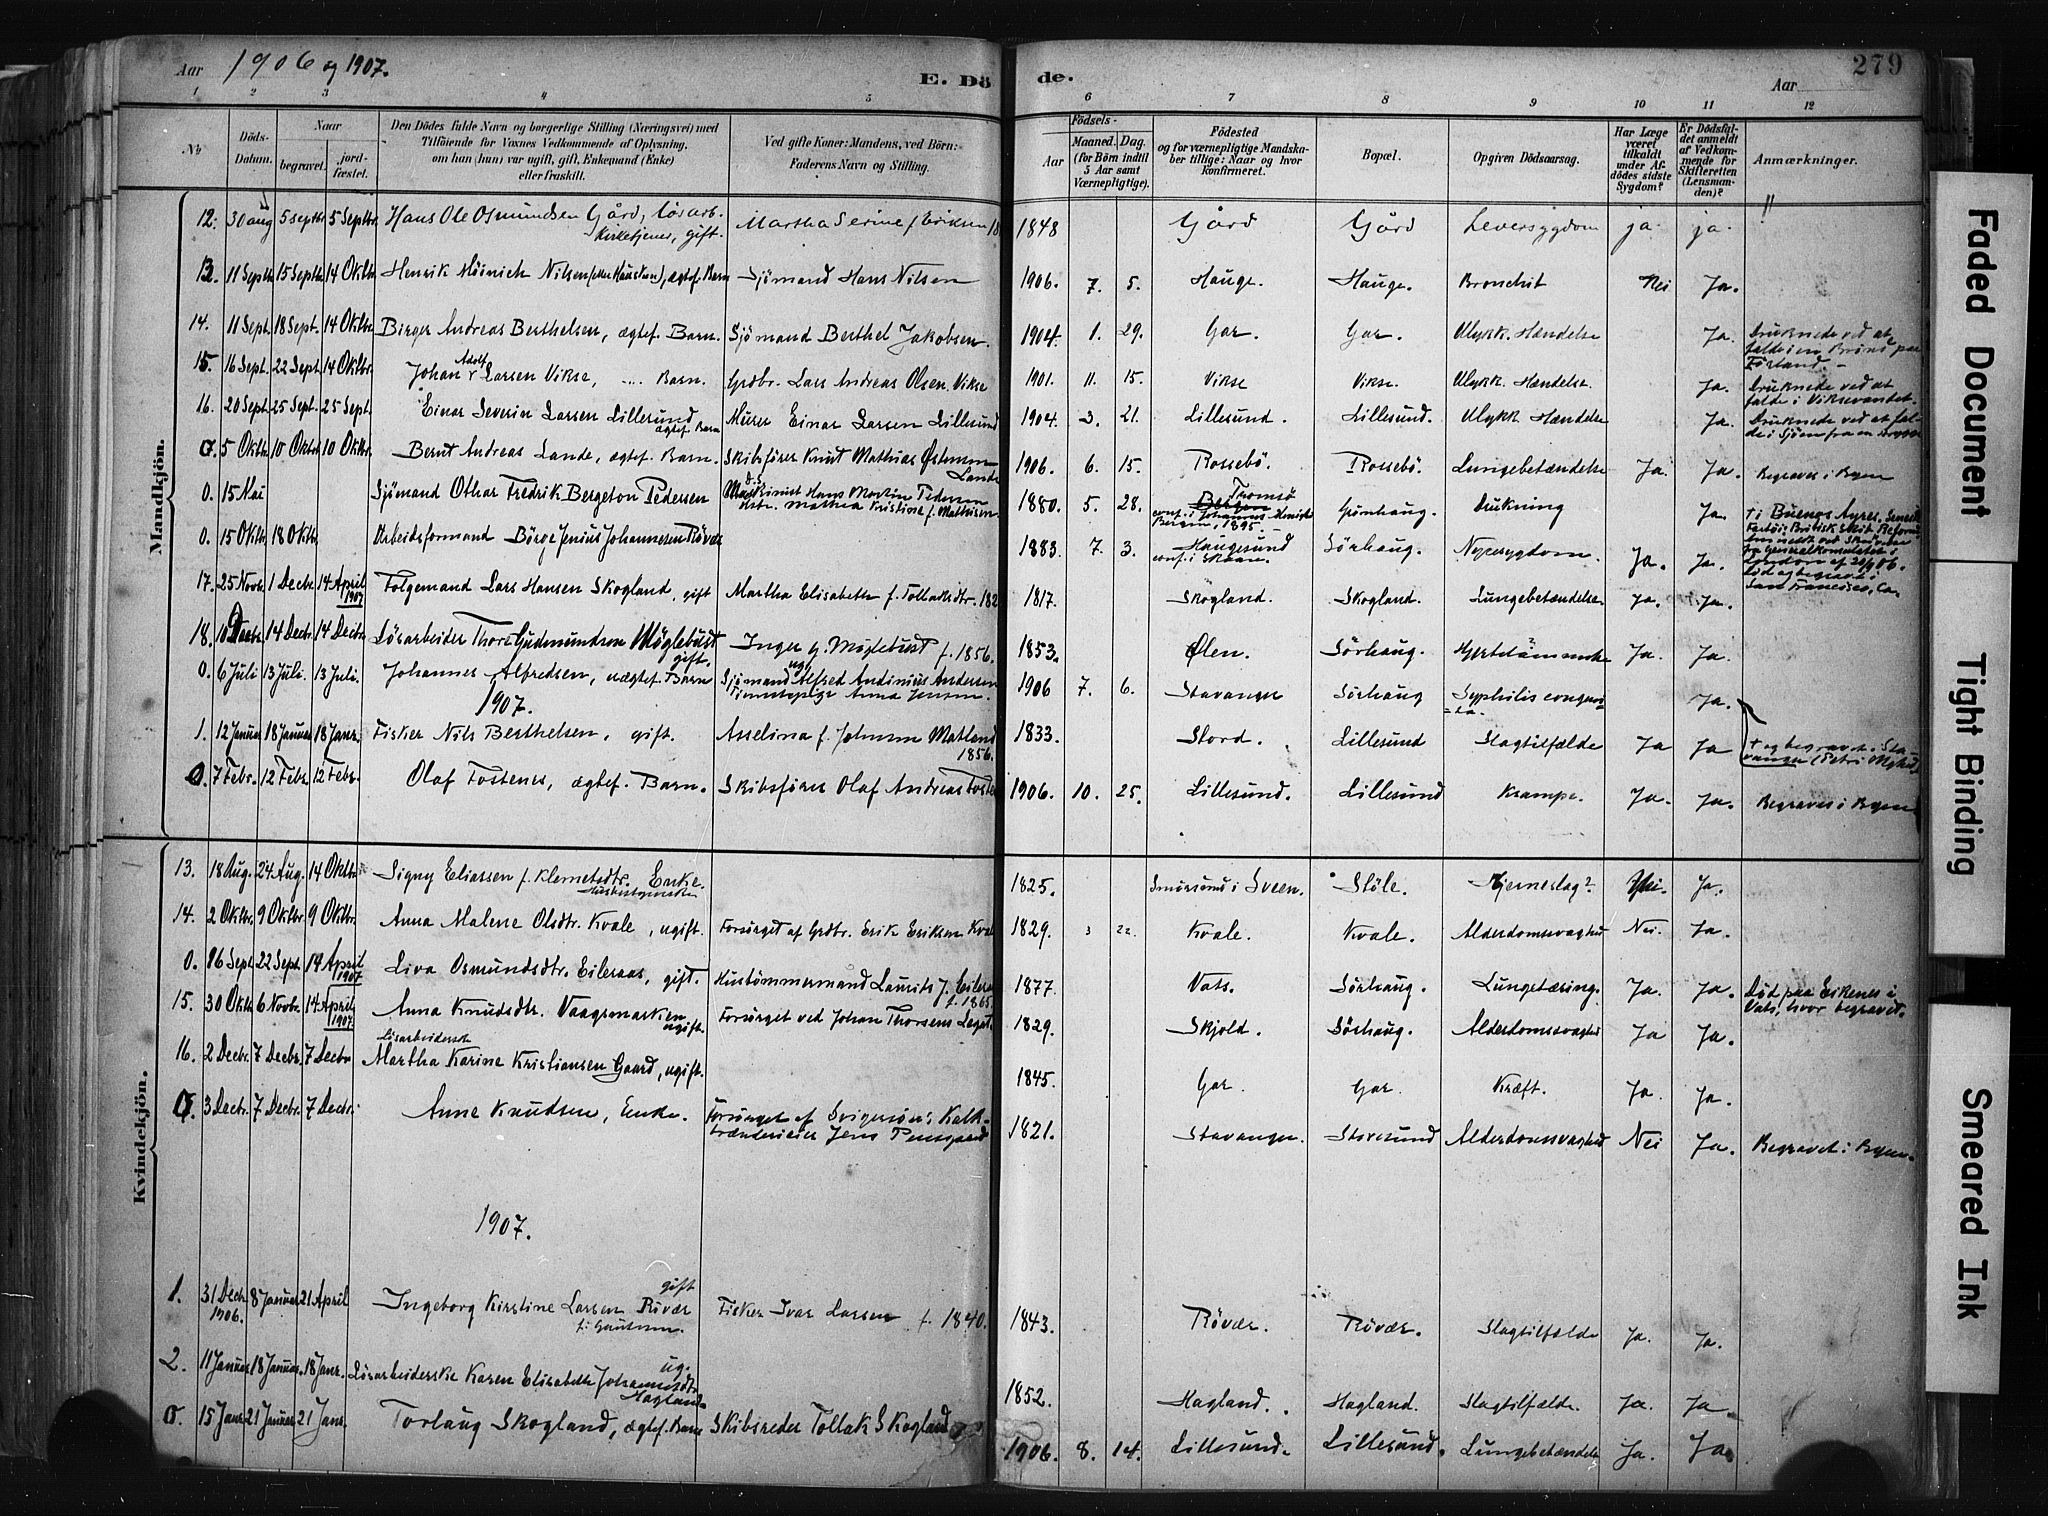 Aar 1906 og 1907.
E. Dö
de.
Aar
279
1 2 3 4 5 6 7 8 9 10 11 12
No
Döds-Datum.
Naar
begravet.
jord-fæstet.
Den Dödes fulde Navn og borgerlige Stilling (Næringsvei) med
Tilföiende for Voxnes Vedkommende af Oplysning,
om han (hun) var ugift, gift, Enkemand (Enke)
eller fraskilt.
Ved gifte Koner: Mandens, ved Börn:
Faderens Navn og Stilling.
Födsels-
Aar
Maaned. Dag.
(for Börn indtil
5 Aar samt
Værnepligtige).
Födested
og for værnepligtige Mandska-
ber tillige: Naar og hvor
konfirmeret.
Bopæl.
Opgiven Dödsaarsag.
Har Læge
været
tilkaldt
under Af-
dödes sidste
Sygdom?
Er Dödsfal-
det anmeldt
af Vedkom-
mende for
Skifteretten
(Lensman-
den)?
Anmærkninger.
Mandkjön.
12. 30 aug 5 septbr 5 Septbr. Hans Ole Osmundsen Gård, løsarb. Kirketjener, gift. Martha Serine f. Eriksen 18 1848 Gård Gård Leversygdom ja. ja.
13. 11 Septbr 15 Septbr 14 Oktbr. Henrik Höinich Nilsen (eller Hansen), ægtef. Barn Sjömand Hans Nilsen 1906. 7. 5. Hauge. Hauge. Bronchit Nei Ja.
14. 11 Sept. 18 Sept. 14 Oktbr. Birger Andreas Berthelsen, ægtef. Barn. Sjömand Berthel Jakobsen. 1904. 1. 29. Gar. Gar. Ulykk. Hændelse Ja. Druknede ved at falde i en Brönd paa Förland.
15. 16 Sept. 22 Sept. 14 Oktbr. Johan Adolf Larsen Vikse, .... Barn. Grdbr. Lars Andreas Olsen Vikse 1901. 11. 15. Vikse Vikse. Ulykk. Hændelse. Ja. Druknede ved at falde i Viksevandet.
16. 20 Sept. 25 Sept. 25 Sept. Einar Severin Larsen Lillesund ægtef. Barn Murer Einar Larsen Lillesund 1904. 3. 21. Lillesund. Lillesund. Ulykk. Hændelse Ja. Druknede ved at falde i Sjöen fra en
0. 5 Oktbr. 10 Oktbr. 10 Oktbr. Bernt Andreas Lande, ægtef. Barn. Skibsförer Knut Mathias Østensen Lande 1906. 6. 15. Rossebö. Rossebö. Lungebetændelse Ja. Ja. Begravet i Byen
0. 15 Mai Sjömand Othar Fredrik Bergeton Pedersen Maskinist Hans Martin Pedersen Hstr. Mathea Kristine f. Mathisen 1880. 5. 28. Bergen Tromsö conf. i Johannes Menigh. Bergen, 1895. Grönhaug. Drukning Ja. † i Buenos Ayres.
0. 15 Oktbr. 18 Oktbr. Arbeidsformand Börge Jenius Johannesen Rövær 1883. 7. 3. Haugesund conf. i Skaare. Sörhaug. Nyresygdom. Ja. Ja. Död og begravet i San Francisco, Ca.
17. 25 Novbr. 1 Decbr. 14 April 1907 Folgemand Lars Hansen Skogland, gift Martha Elisabeth f. Tollaksdtr. 182 1817. Skogland. Skogland. Lungebetændelse Ja. Ja.
18. 10 Decbr. 14 Decbr. 14 Decbr. Lösarbeider Thore Gudmundsen Möglebust gift. Inger g. Möglebust f. 1856. 1853. Ølen. Sörhaug. Ja. Ja.
0. 6 Juli 13 Juli. 13 Juli. Johannes Alfredsen, uægtef. Barn Sjömand ug. Alfred Andinius Andersen Tjenestepige Anna Jensen. 1906 7. 6. Stavanger Sörhaug Syphilis congenita. Ja. † og begravet i Stavanger (Petri Mghd)
1907.
1. 12 Januar 18 Januar 18 Janr. Fisker Nils Berthelsen, gift. Asselina f. Johnsen Matland 1856. 1833. Stord. Lillesund Slagtilfælde Ja Ja
0. 7 Febr. 12 Febr. 12 Febr. Olaf Fostenes, ægtef. Barn. Skibsförer Olaf Andreas Foste 1906. 10. 25. Lillesund. Lillesund Krampe. Ja. Ja. Begravet i Byen
Kvindekjön.
13. 18 Aug. 24 Aug. 14 Oktbr. Signy Eliassen f. Klemetsdtr. Enke. Husbestyrerske 1825. Smörsund i Sveen. Stöle. Hjerneslag? Nei. Ja.
14. 2 Oktbr. 9 Oktbr. 9 Oktbr. Anna Malene Olsdtr. Kvale, ugift. Forsörget af Grdbr. Erik Eriksen Kval 1829. 3 22. Kvale. Kvale. Alderdomssvaghed Nei. Ja.
0. 16 Sept. 22 Sept. 14 April 1907 Liva Osmundsdtr. Eileraas, gift. Hustömmermand Laurits J. Eileraa f. 1865. 1877. Vats. Sörhaug. Lungetæring. Ja. Ja. Död paa Eikenes i Vats, hvor begravet.
15. 30 Oktbr 6 Novbr. 14 April 1907. Anna Knudsdtr. Vaagsmarken ugift. Forsörget ved Johan Thorsens Legat. 1829. Skjold. Sörhaug. Alderdomssvaghed Ja Ja.
16. 2 Decbr. 7 Decbr. 7 Decbr Lösarbeiderske Martha Karine Kristiansen Gaard, ugift. 1845. Gar. Gar. Kræft. Ja. Ja.
0. 3 Decbr. 7 Decbr. 7 Decbr. Anne Knudsen, Enke. Forsörget af Svigersön: Kalkbrænderieier Jens 1821. Stavanger. Storesund Alderdomssvaghed Nei Ja. Begravet i Byen.
1907.
1. 31 Decbr. 1906. 8 Januar 21 April Ingeborg Kirstine Larsen Rövær gift Fisker Ivar Larsen f. 1840. 1843. Rövær. Rövær. Slagtilfælde Ja. Ja.
2. 11 Januar 18 Januar. 18 Janr. Lösarbeiderske Karen Elisabeth Johannesdtr. Hagland ug. 1852. Hagland. Hagland. Slagtilfælde. Ja. Ja
0. 15 Janr. 21 Januar 21 Janr. Torlaug Skogland, ægtef. Barn Skibsreder Tollak Skogland 1906. 8. 14. Lillesund. Lillesund. Lungebetændelse Ja. Ja.
Faded Document
Tight Binding
Smeared Ink